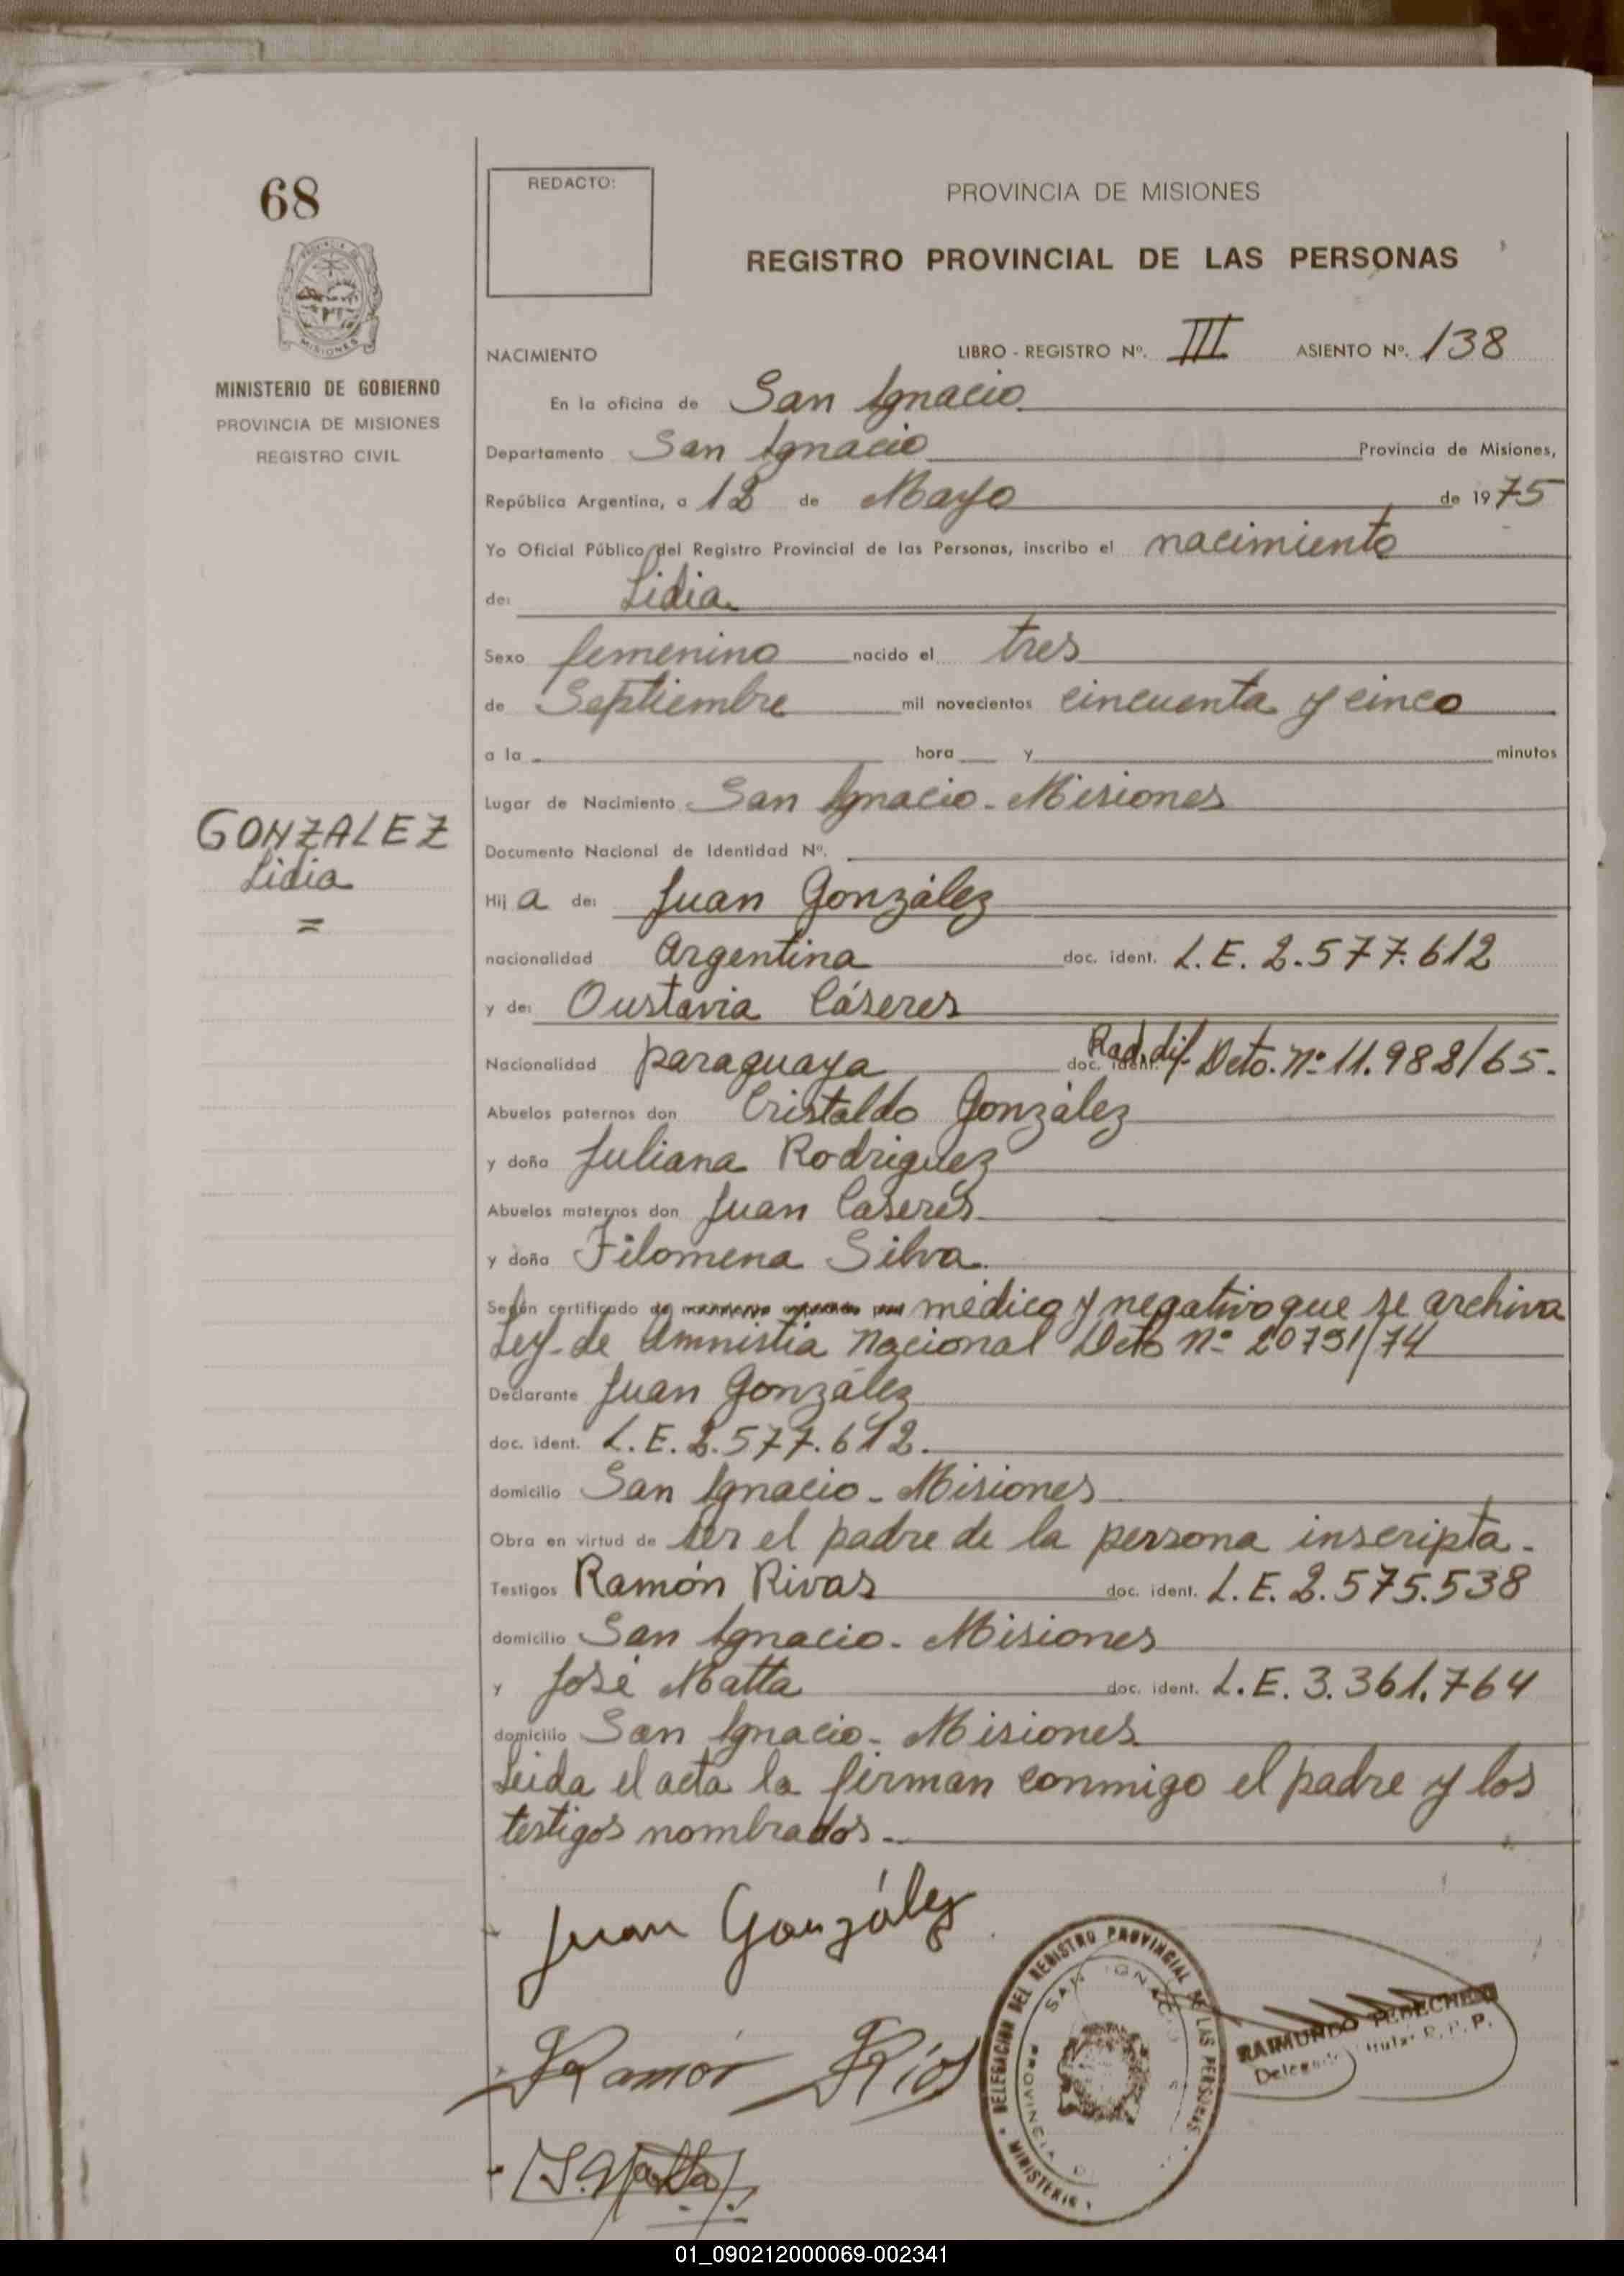 68
REDACTO:
PROVINCIA DE MISIONES
REGISTRO PROVINCIAL DE LAS PERSONAS
MISIONES
MINISTERIO DE GOBIERNO
PROVINCIA DE MISIONES
REGISTRO CIVIL
NACIMIENTO LIBRO - REGISTRO Nº. III ASIENTO Nº. 138
En la oficina de San Ignacio
Departamento San Ignacio Provincia de Misiones,
República Argentina, a 12 de Mayo de 1975
Yo Oficial Público del Registro Provincial de las Personas, inscribo el nacimiento
de: Lidia
Sexo femenino nacido el tres
de Septiembre mil novecientos cincuenta y cinco
a la hora y minutos
Lugar de Nacimiento San Ignacio - Misiones
GONZALEZ
Lidia
=
Documento Nacional de Identidad Nº.
Hij a de: Juan González
nacionalidad Argentina doc. ident. L.E. 2.577.612
y de: Oustavia Cáseres
Nacionalidad paraguaya doc. ident. Rad. dif. Dcto. Nº 11.982/65.
Abuelos paternos don Cristaldo González
y doña Juliana Rodriguez
Abuelos maternos don Juan Caseres
y doña Filomena Silva
Según certificado de médico y negativo que se archiva
Ley de Amnistia Nacional Dcto Nº 20751/74
Declarante Juan González
doc. ident. L.E. 2.577.612.
domicilio San Ignacio - Misiones
Obra en virtud de ser el padre de la persona inscripta.
Testigos Ramón Rivas doc. ident. L.E. 2.575.538
domicilio San Ignacio - Misiones
y José Matta doc. ident. L.E. 3.361.764
domicilio San Ignacio - Misiones
Leida el acta la firman conmigo el padre y los
testigos nombrados.
Juan González
Ramón Ríos
J. Matta
DELEGACION DEL REGISTRO PROVINCIAL DE LAS PERSONAS
SAN IGNACIO
PROVINCIA D
MINISTERIO
RAIMUNDO
R. P. P.
01_090212000069-002341